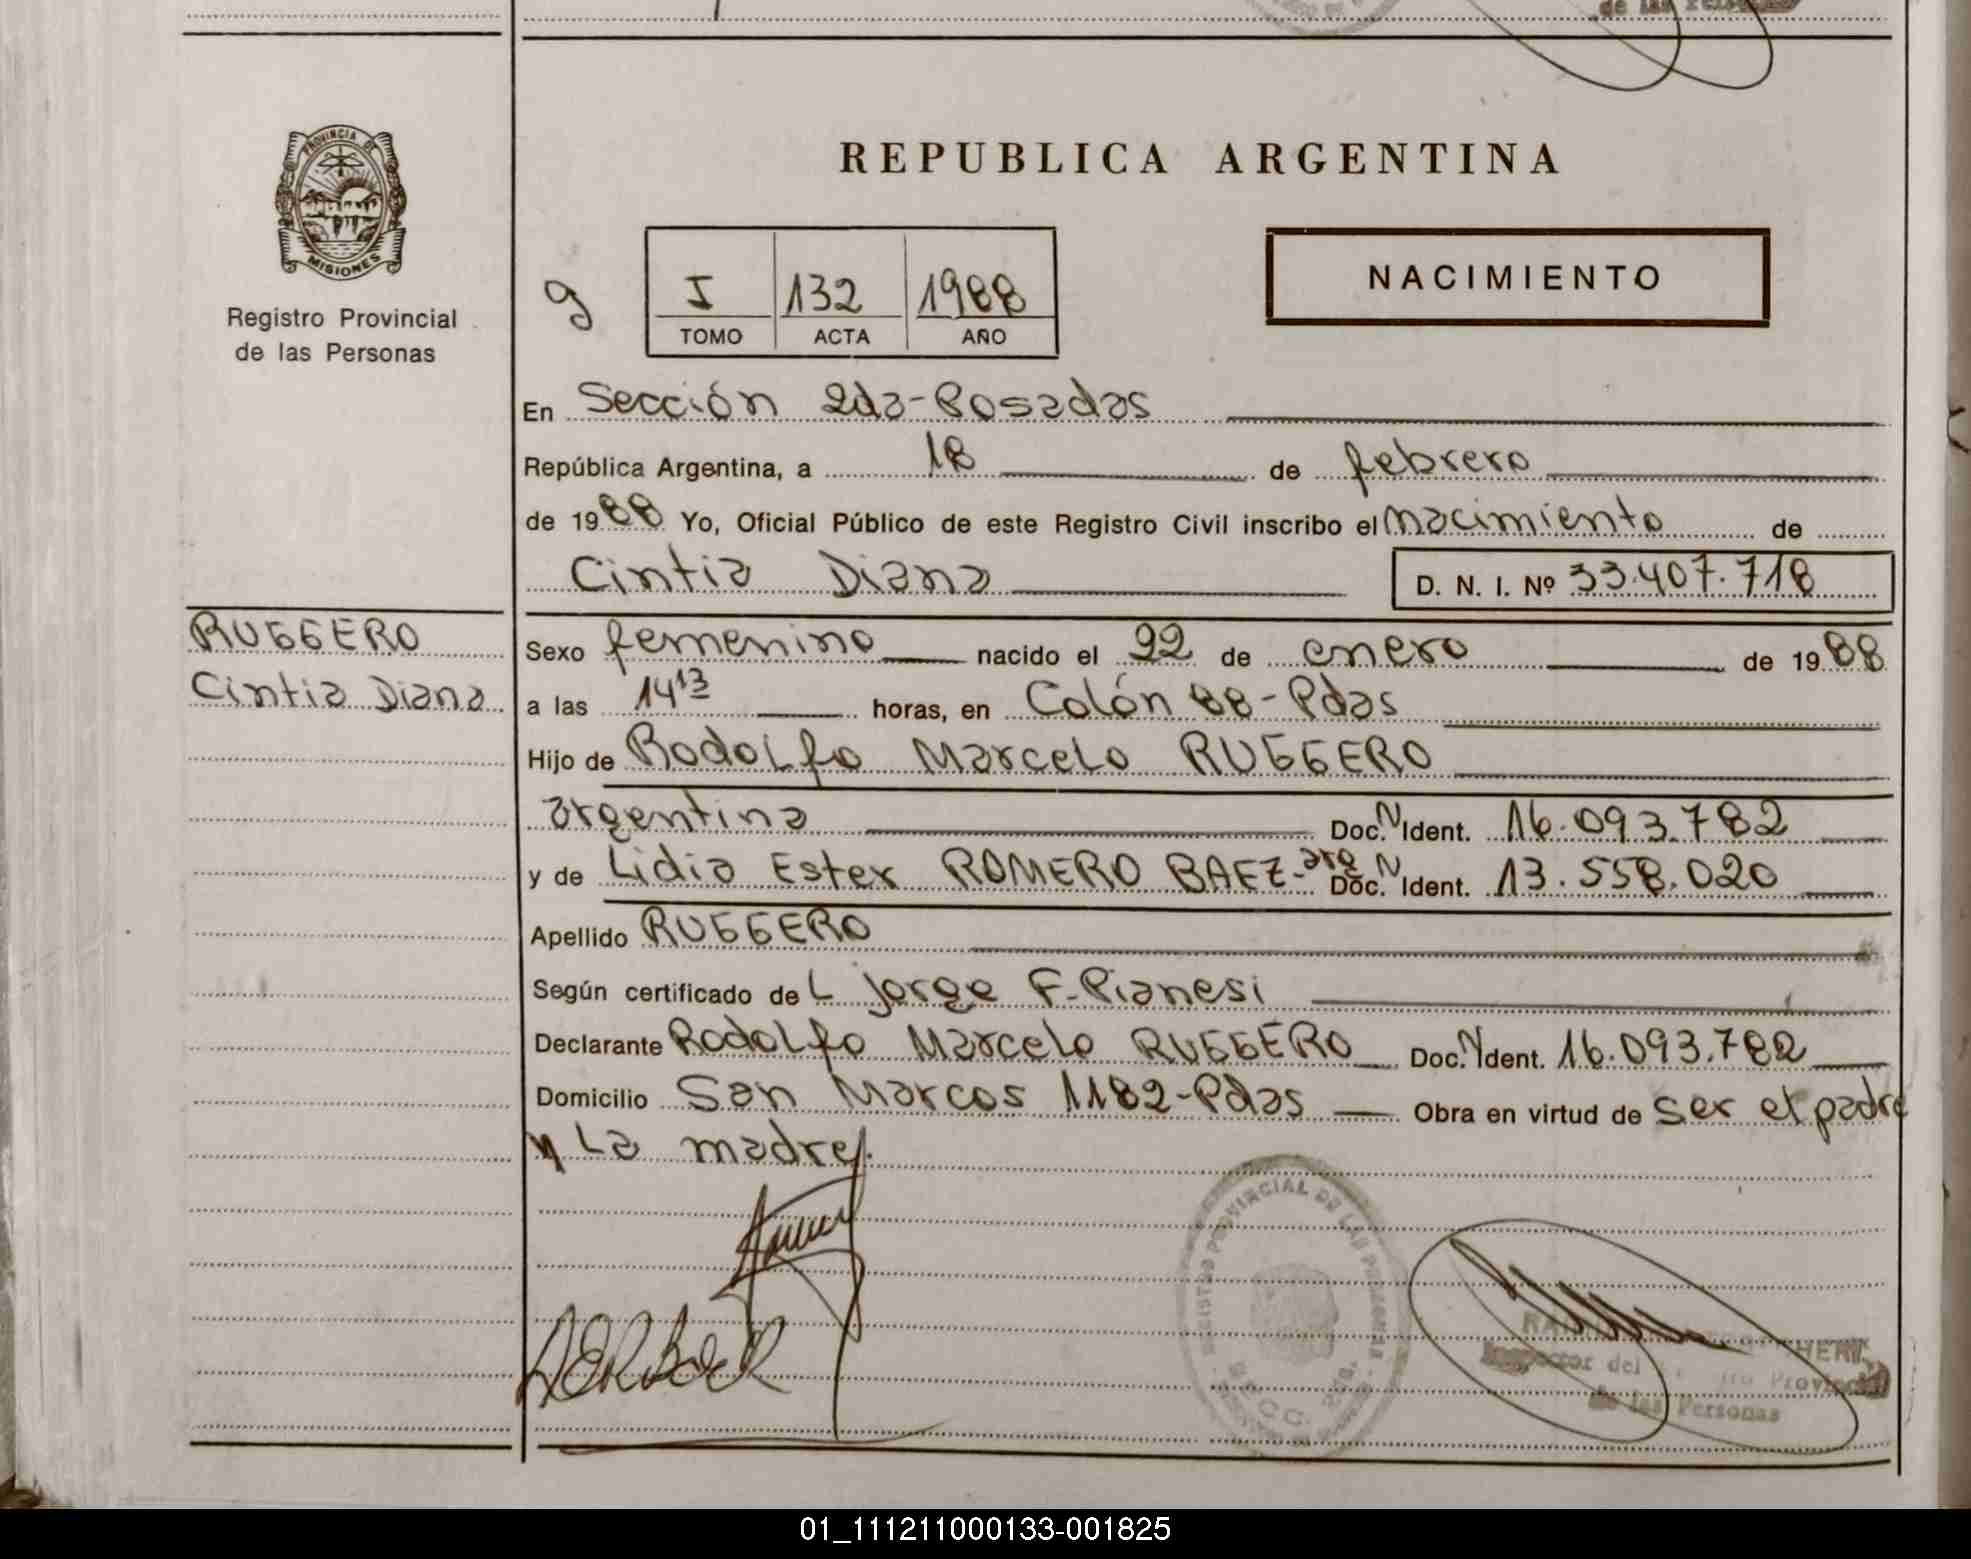 de las Personas
PROVINCIA DE
MISIONES
Registro Provincial
de las Personas
REPUBLICA ARGENTINA
g
I 132 1988
TOMO ACTA AÑO
NACIMIENTO
En Sección 2da-Posadas
República Argentina, a 18 de febrero
de 1988 Yo, Oficial Público de este Registro Civil inscribo el nacimiento de
Cintia Diana D. N. I. Nº 33.407.718
RUGGERO
Cintia Diana
Sexo femenino nacido el 22 de enero de 1988
a las 14 13 horas, en Colón 88-Pdas
Hijo de Rodolfo Marcelo RUGGERO
argentina Doc. N Ident. 16.093.782
y de Lidia Ester ROMERO BAEZ-arg Doc. N Ident. 13.558.020
Apellido RUGGERO
Según certificado de L Jorge F-Pianesi
Declarante Rodolfo Marcelo RUGGERO Doc. N Ident. 16.093.782
Domicilio San Marcos 1182-Pdas Obra en virtud de ser el padre
y La madre.
REGISTRO PROVINCIAL DE LAS PERSONAS
Inspector del Provincial
de las Personas
01_111211000133-001825